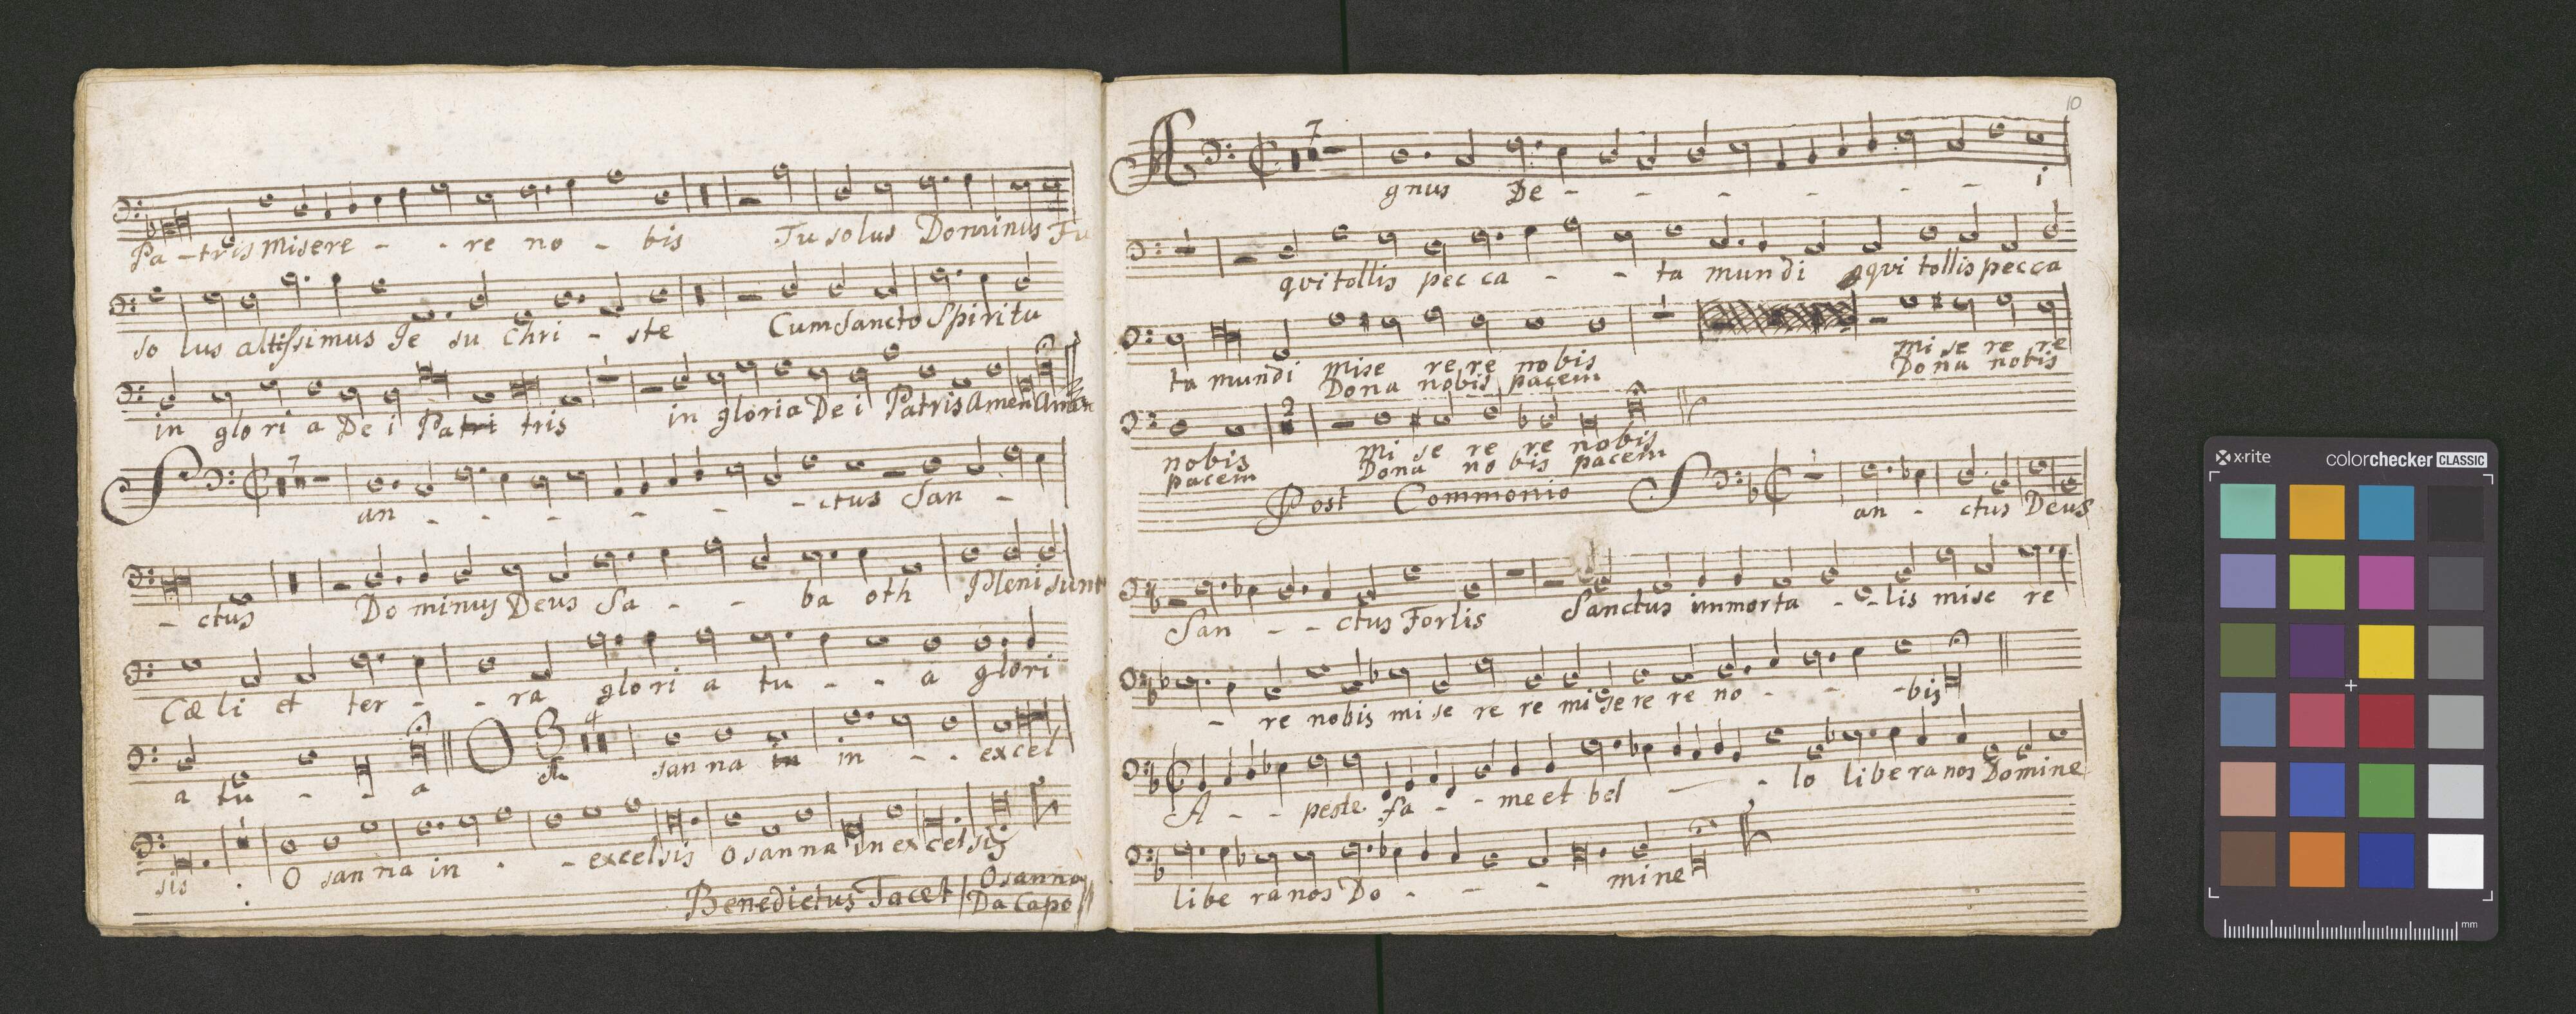 Pa - tris misere - - re no - bis Tu solus Dominus Tu
so lus altissimus Je su Chri - ste Cum Sancto Spiritu
in glo ri a De i Pa tri tris in gloria De i Patris Amen Amen
7
S an - - - - - - ctus San -
- ctus Do minus Deus Sa - - ba oth Pleni sunt
Cæ li et ter - - ra glo ri a tu - - a glori
a tu - - a O 3 4 san na in in - - excel
sis O san na in - - excelsis O san na in excelsis
Benedictus Tacet Osanna
Da Capo
10
7
A gnus De - - - - - - i
qui tollis pec ca - - ta mun di qui tollis pecca
ta mundi mise re re nobis mi se re re
Dona nobis pacem Dona nobis
2
nobis mi se re re nobis
pacem Dona no bis pacem
Post Commonio S an - ctus Deus
San - - ctus Fortis Sanctus immorta - - lis mise re
- re nobis mi se re re mi se re re no - - - bis
A - - peste fa - - me et bel - - lo libera nos Domine
libe ra nos Do - - - mine
x-rite colorchecker CLASSIC
mm